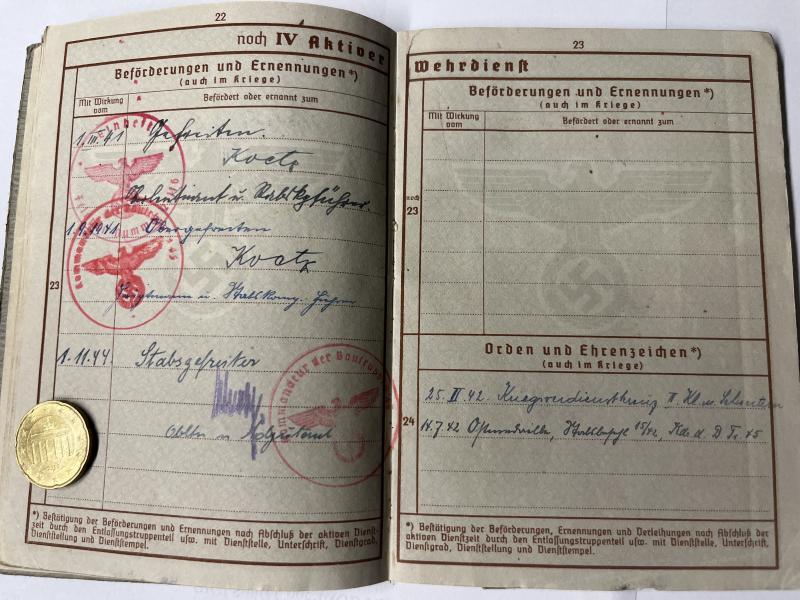 22
noch IV Aktiver
Beförderungen und Ernennungen*)
(auch im Kriege)
Mit Wirkung vom
Befördert oder ernannt zum
1.III.41 Gefreiten.
Koetz
u. Stabskpführer.
1.9.1941 Obergefreiten
Koetz
23
Hauptmann u. Stabskomp. Führer
1.11.44 Stabsgefreiter
Obltn u.
*) Bestätigung der Beförderungen und Ernennungen nach Abschluß der aktiven Dienst-
zeit durch den Entlassungstruppenteil usw. mit Dienststelle, Unterschrift, Dienstgrad,
Dienststellung und Dienststempel.
23
Wehrdienst
Beförderungen und Ernennungen*)
(auch im Kriege)
Mit Wirkung vom
Befördert oder ernannt zum
noch
23
Orden und Ehrenzeichen*)
(auch im Kriege)
25.II.42. Kriegsverdienstkreuz II. Kl. m. Schwertern
24
14.7.42 Ostmedaille, Stabsbefehl 15/42, Kdr. d. B Tr. 45
*) Bestätigung der Beförderungen, Ernennungen und Verleihungen nach Abschluß der
aktiven Dienstzeit durch den Entlassungstruppenteil usw. mit Dienststelle, Unterschrift,
Dienstgrad, Dienststellung und Dienststempel.